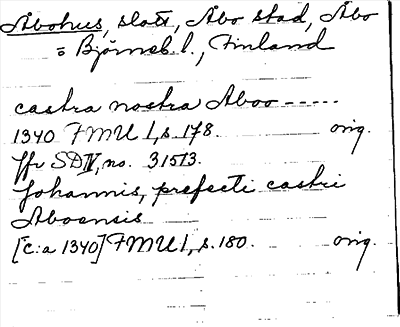 Åbohus, slott, Åbo stad, Åbo
o Björneb. l., Finland
castra nostra Aboo -----
1340 FMU 1, s. 178. orig.
Jfr SD IV, no. 3513.
Johannis, prefecti castri
Aboensis
[c:a 1340] FMU 1, s. 180. orig.